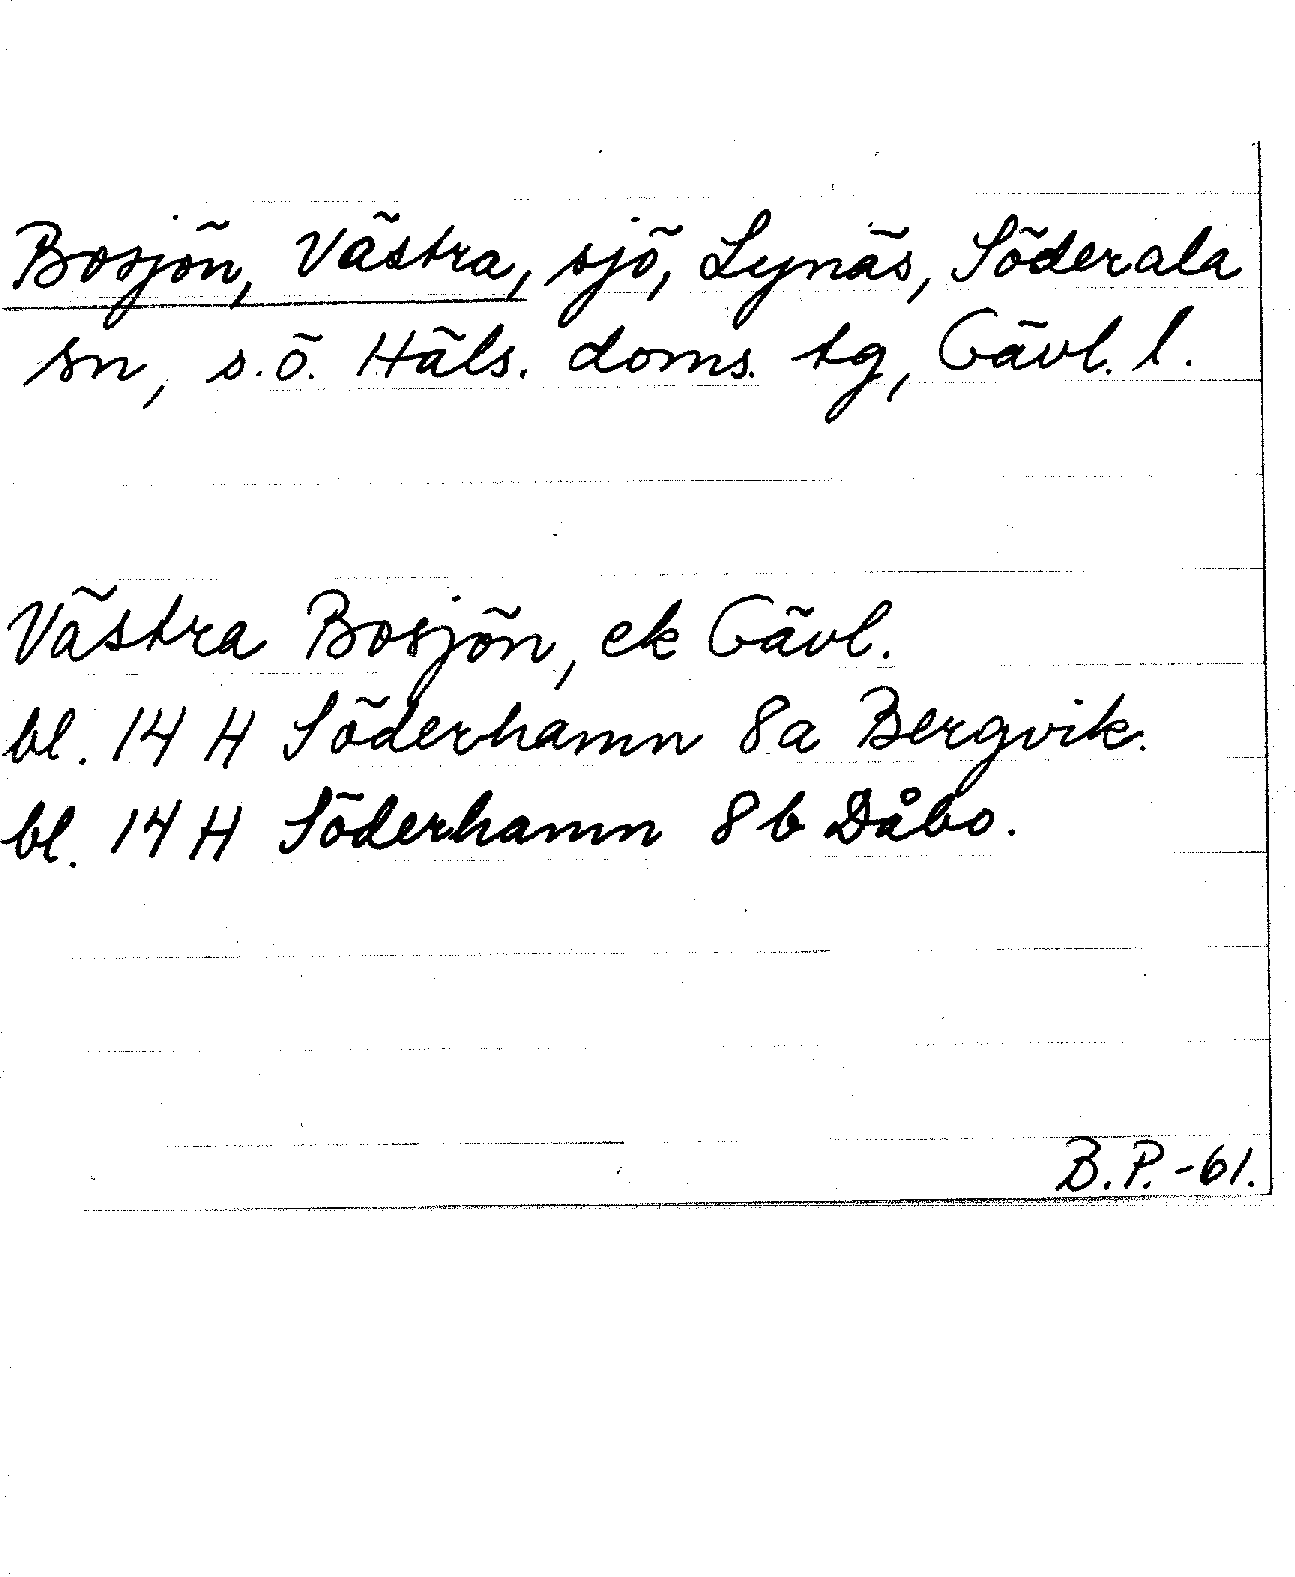 Bosjön, Västra, sjö, Lynäs, Söderala
sn, s.ö. Häls. doms. tg, Gävl. l.
Västra Bosjön, ek Gävl.
bl. 14 H Söderhamn 8a Bergvik.
bl. 14 H Söderhamn 8b Dåbo.
B.P.-61.